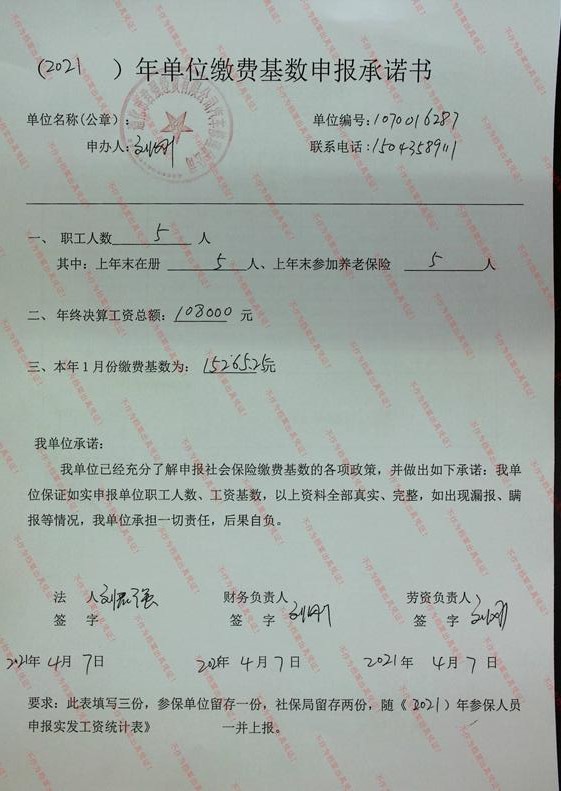 （2021 ）年单位缴费基数申报承诺书
单位名称(公章)： 单位编号:1070016287
申办人: 联系电话:15043589111
一、 职工人数 5 人
其中：上年末在册 5 人、上年末参加养老保险 5 人
二、年终决算工资总额：108000 元
三、本年1月份缴费基数为： 15265.25元
我单位承诺：
我单位已经充分了解申报社会保险缴费基数的各项政策，并做出如下承诺：我单
位保证如实申报单位职工人数、工资基数，以上资料全部真实、完整，如出现漏报、瞒
报等情况，我单位承担一切责任，后果自负。
法 人 财务负责人 劳资负责人
签 字 签 字 签 字
2021年 4月 7日 2021年 4月 7日 2021年 4月 7日
要求：此表填写三份，参保单位留存一份，社保局留存两份，随《 2021）年参保人员
申报实发工资统计表》 一并上报。